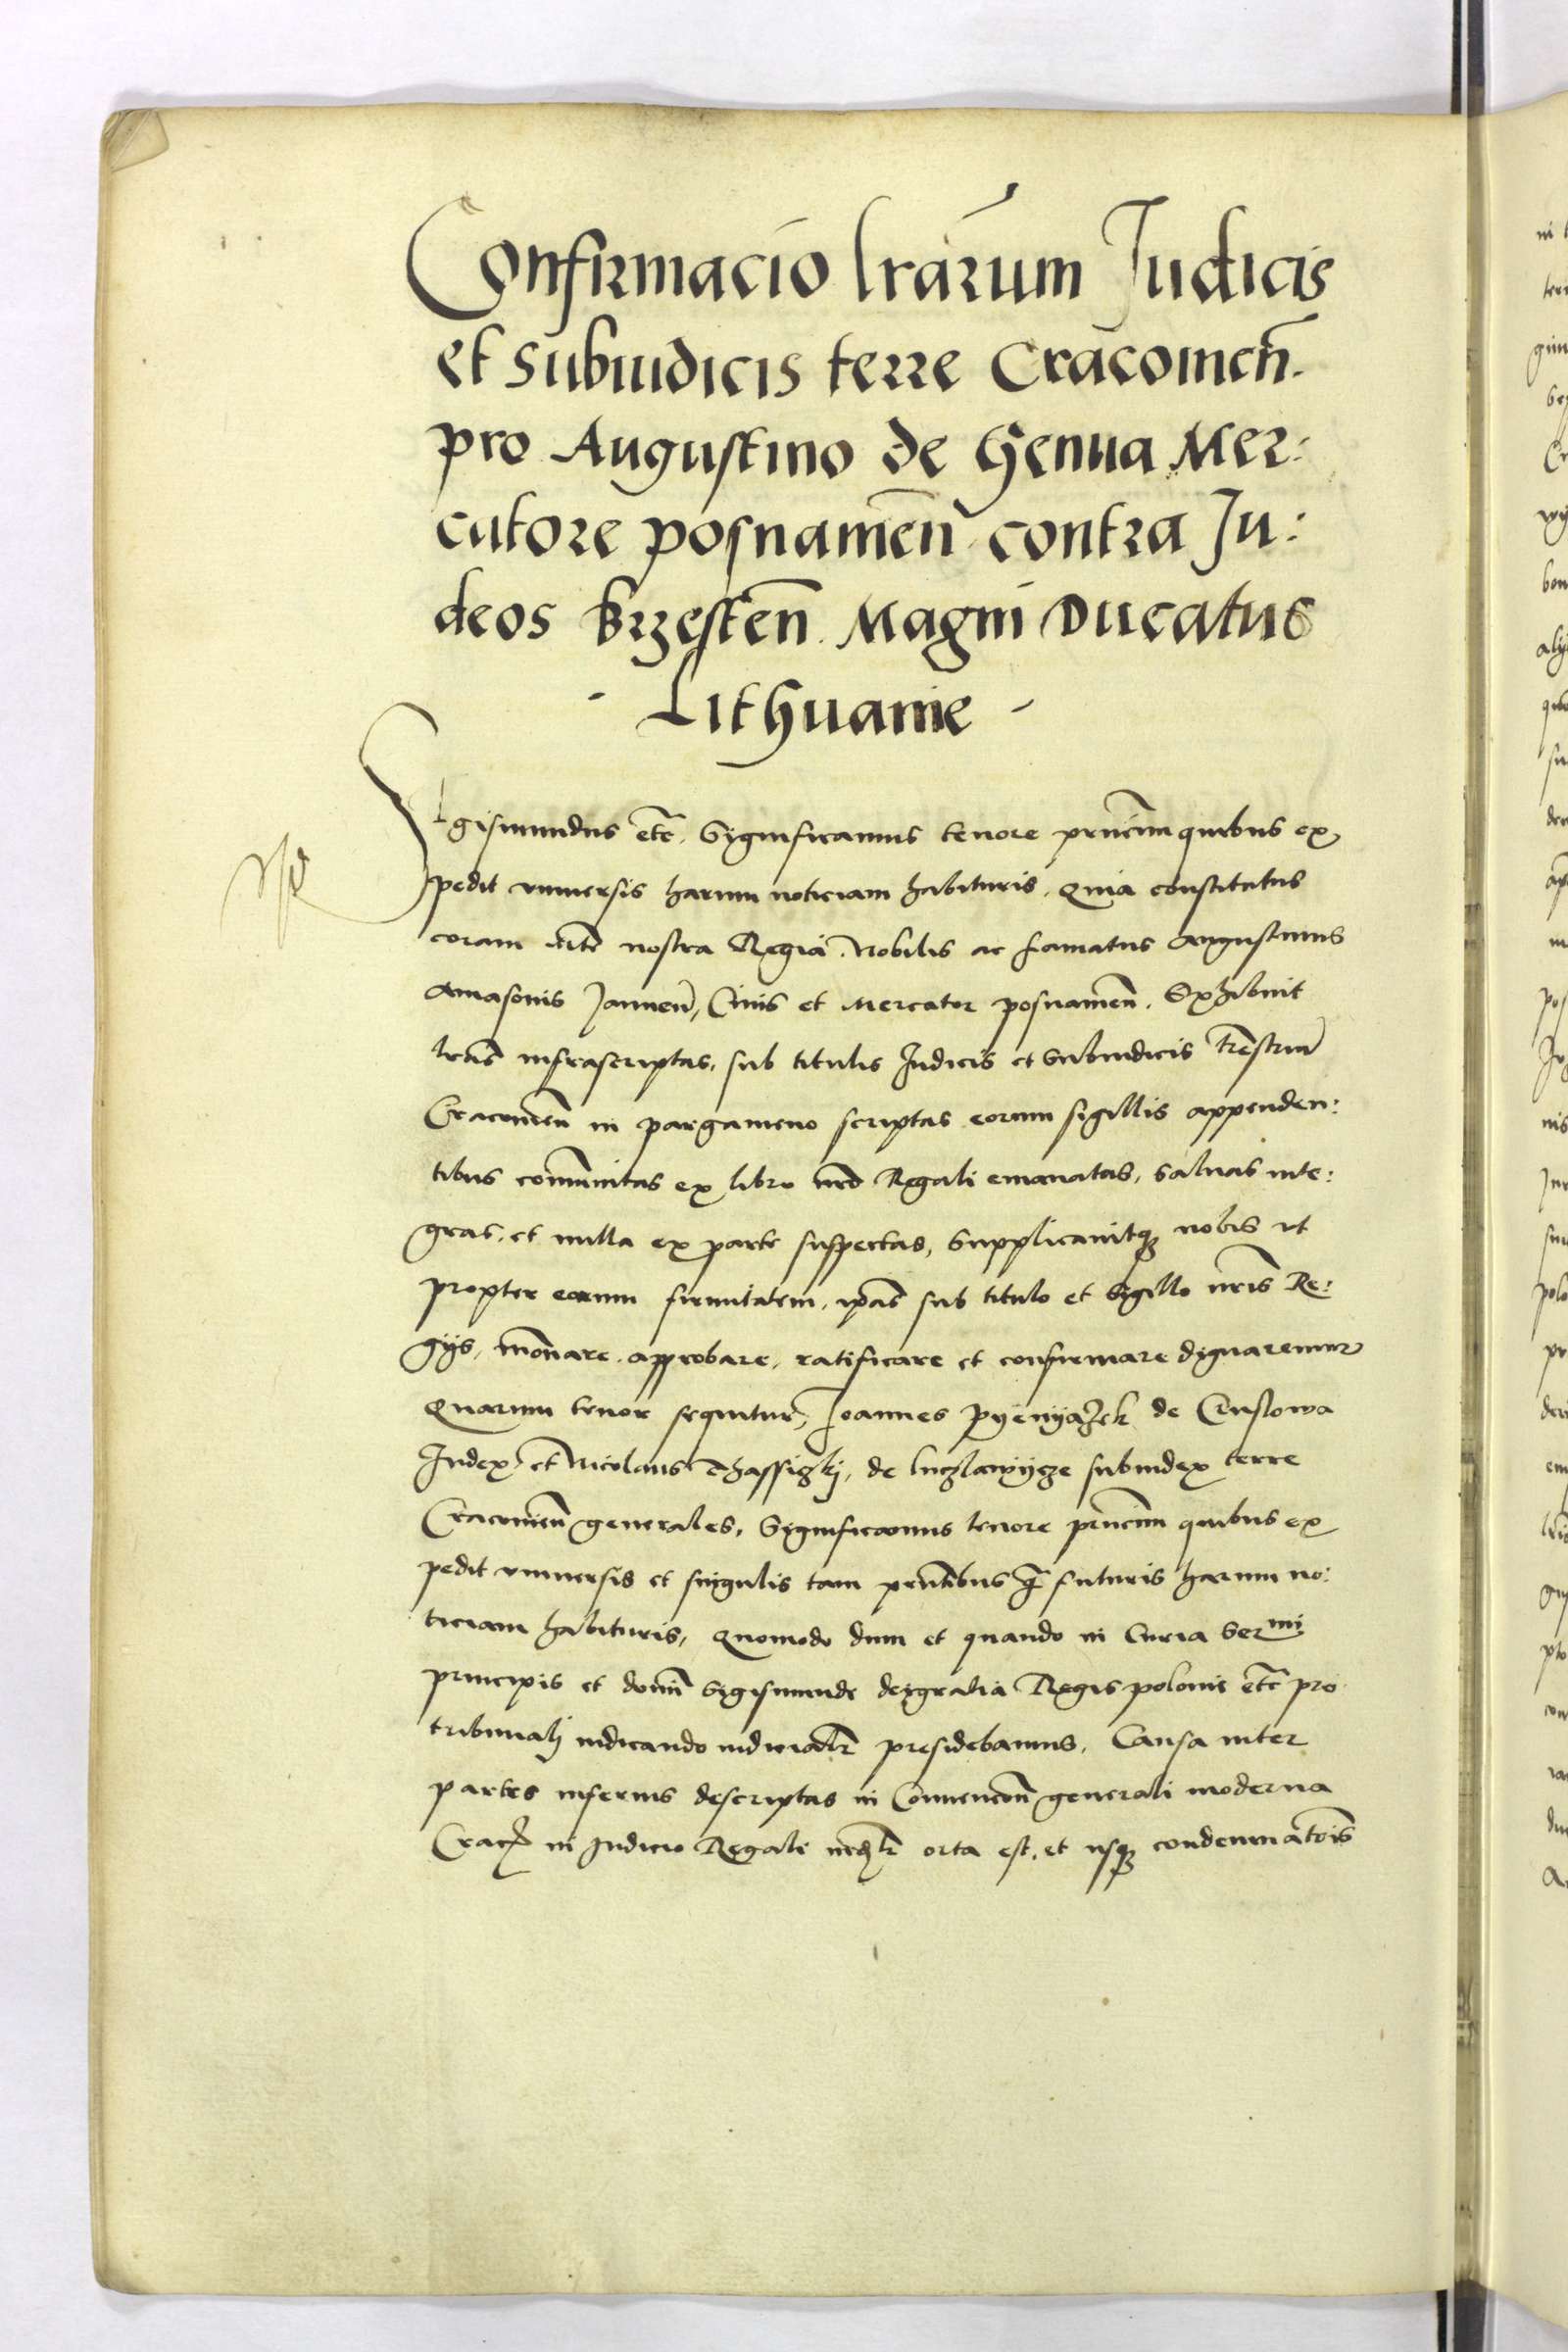 Confirmacio lrarum Judicis
et subiudicis terre Cracouien.
pro Augustino de Genua Mer:
catore posnanien contra Ju:
deos Brzesten. Magni Ducatus
Lithuanie
Sigismundus etc. Significamus tenore pntium quibus ex
pedit vniuersis harum noticiam habituris. Quia constitutus
coram Mte nostra Regia. Nobilis ac famatus Augustinus
Amasonis Januen, Ciuis et Mercator posnanien. Exhibuit
lras infrascriptas, sub titulis Judicis et Subiudicis trestrium
Cracouien in pargameno scriptas eorum sigillis appenden:
tibus communitas ex libro nro Regali emanatas, saluas inte:
gras, et nulla ex parte suspectas, Supplicauitq3 nobis vt
propter eorum firmitatem, ipas sub titulo et Sigillo nris Re:
gijs, innouare. approbare, ratificare et confirmare dignaremur
Quarum tenor sequitur, Joannes Pyenyazek de Cruslowa
Judex et Nicolaus de luczlawycze subiudex terre
Cracouien generales, Significamus tenore pntium quibus ex
pedit vniuersis et singulis tam pntibus q futuris harum no:
ticiam habituris, Quomodo dum et quando in Curia Sermi
principis et domini Sigismundi dei gratia Regis polonie etc pro
tribunali iudicando iudicialr presidebamus, Causa inter
partes inferius descriptas in Conuencon generali moderna
Crac in Judicio Regali orta est, et usq3 condemnatois